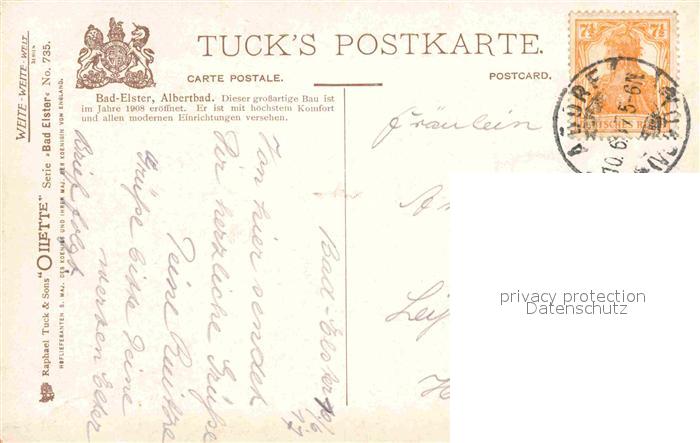 TUCK'S POSTKARTE.
CARTE POSTALE.
POSTCARD.
Bad-Elster, Albertbad. Dieser großartige Bau ist
im Jahre 1908 eröffnet. Er ist mit höchstem Komfort
und allen modernen Einrichtungen versehen.
WEITE-WEITE-WELT
SERIEN
Raphael Tuck & Sons "OILETTE" Serie »Bad Elster« No. 735.
HOFLIEFERANTEN S. MAJ. DES KOENIGS UND IHRER MAJ. DER KOENIGIN VON ENGLAND.
7½ 7½
ADORF
10.6.17 5-6N
Fräulein
An
Leip
Bad-Elster 10/6
17
Von hier sendet
Dir herzliche Grüße
Deine
Grüße bitte Deine
werten Elter
Brief folgt
privacy protection
Datenschutz